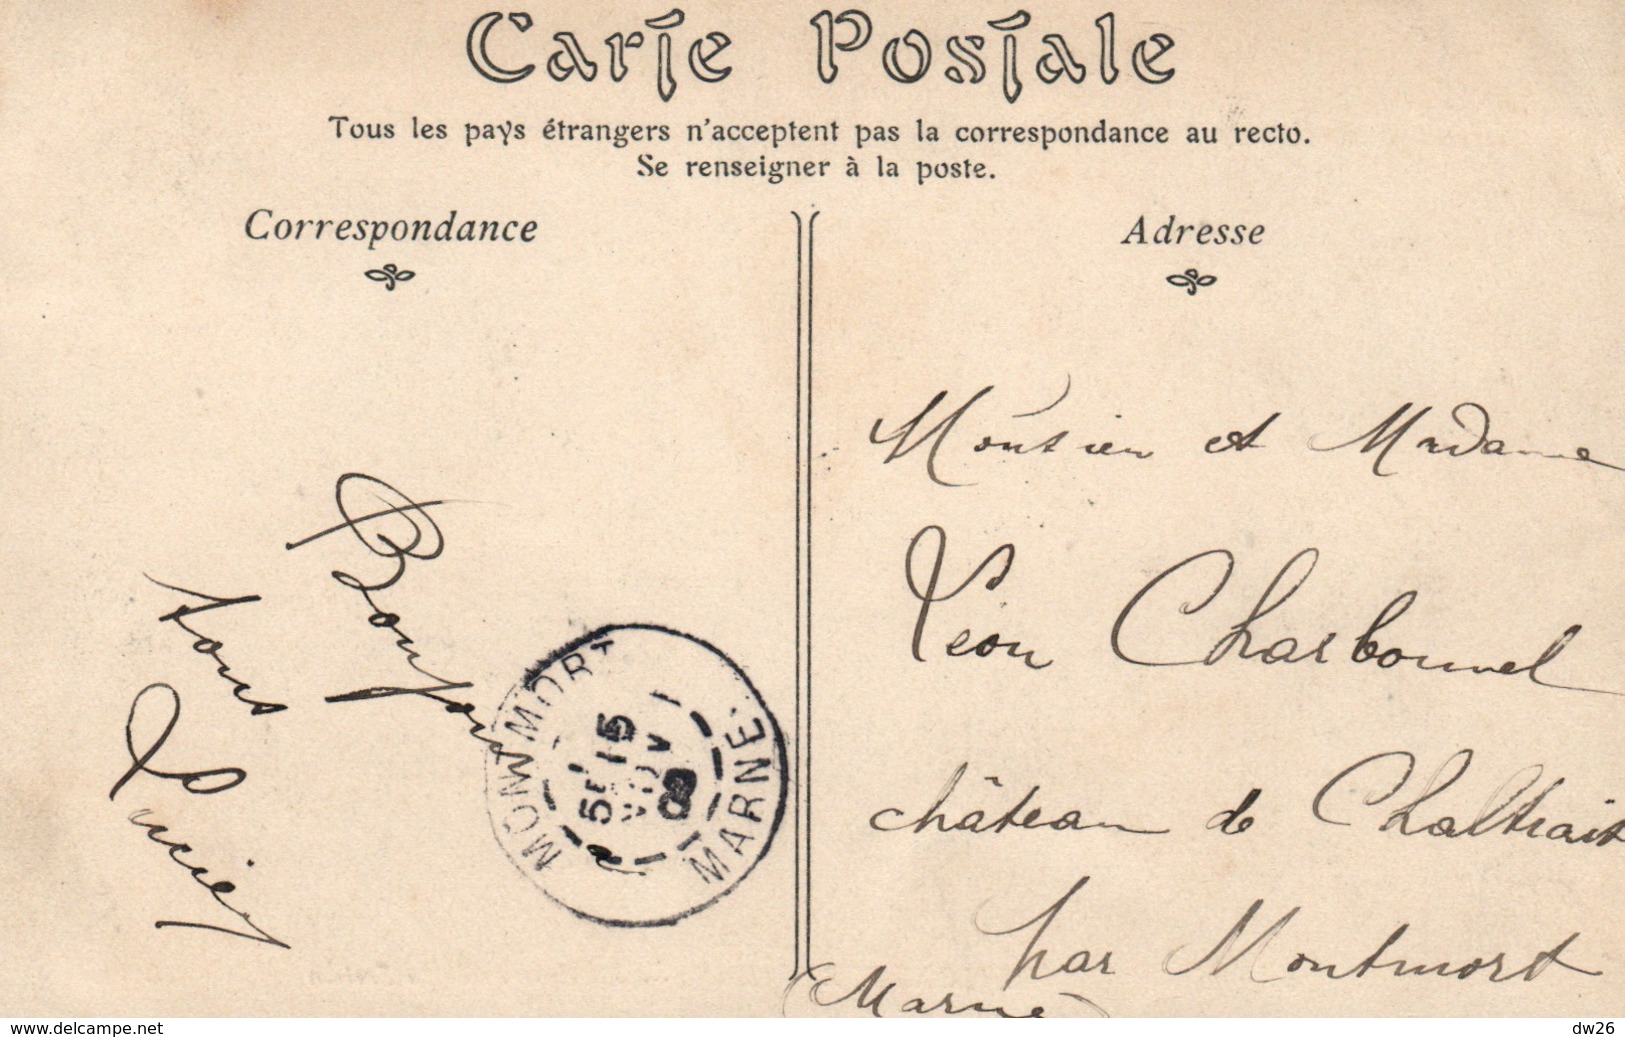 Carte Postale
Tous les pays étrangers n'acceptent pas la correspondance au recto.
Se renseigner à la poste.
Correspondance
Adresse
Bonjour
tous
Lucie
MONTMORT
MARNE
15
NOV
Monsieur et Madame
Léon Charbonnel
château de Chaltrait
par Montmort
(Marne)
www.delcampe.net
dw26